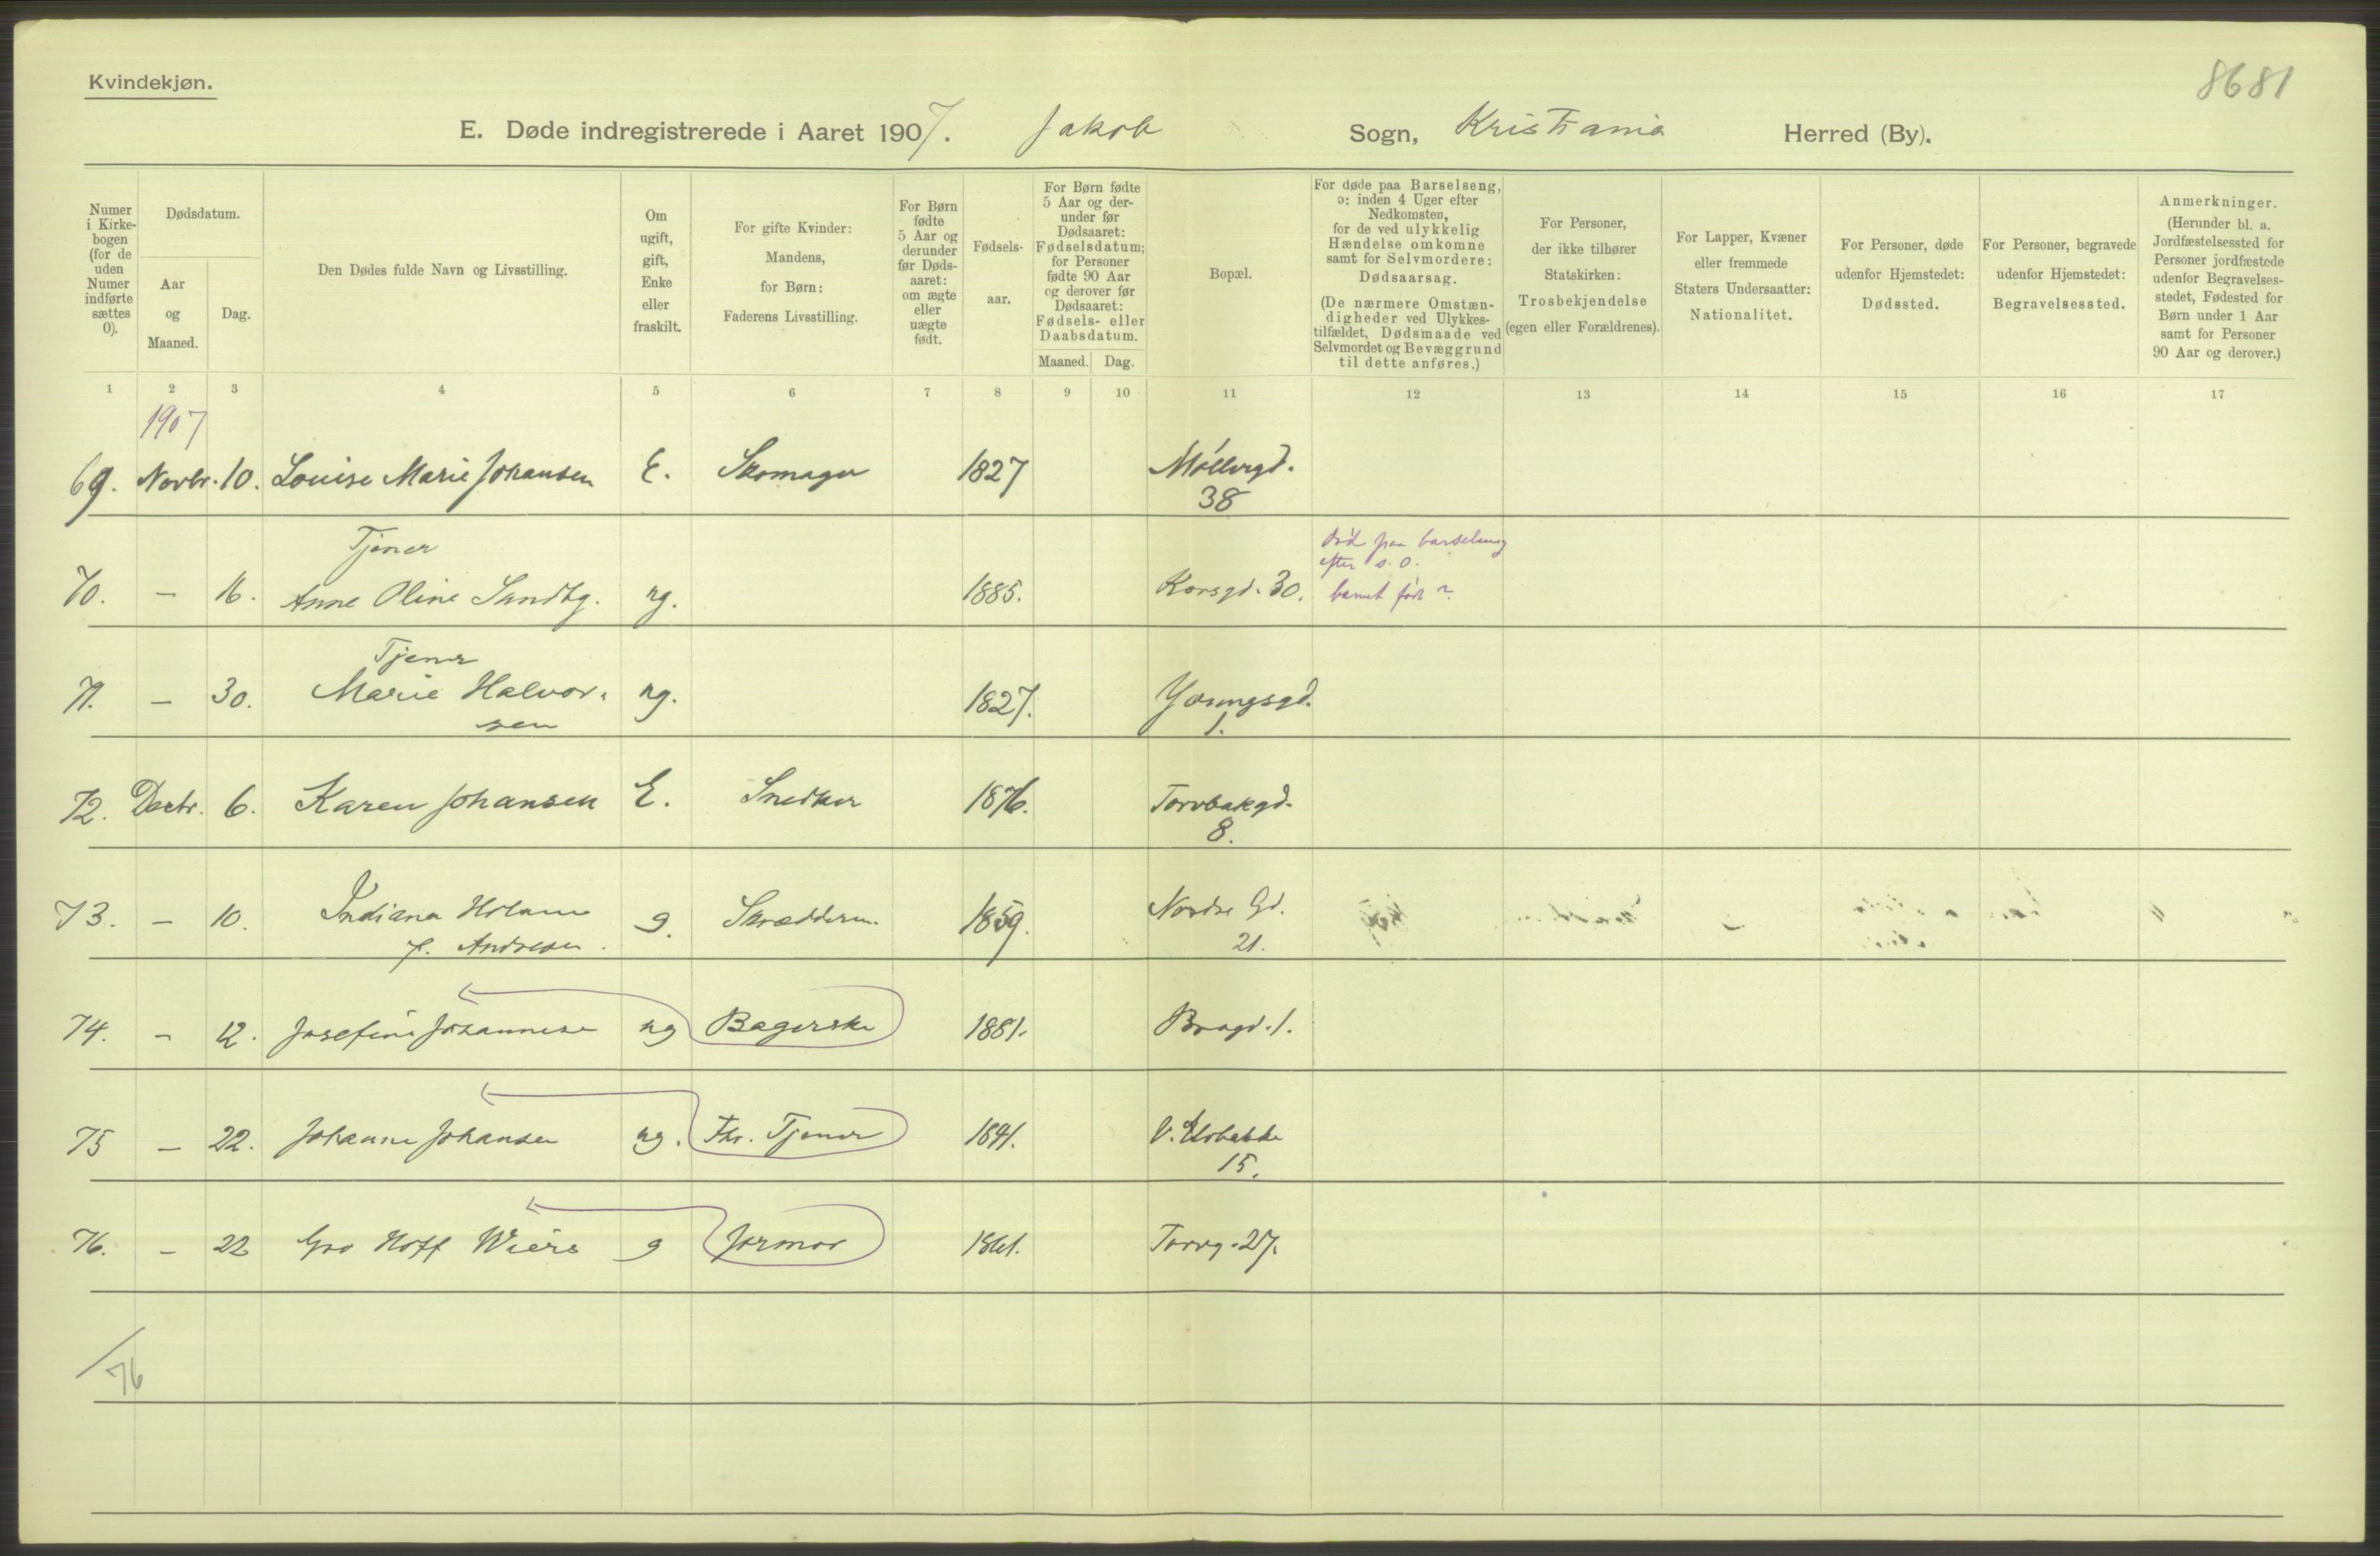 Kvindekjøn.
8681
E. Døde indregistrerede i Aaret 1907. Jakob Sogn, Kristiania Herred (By).
Numer i Kirkebogen (for de uden Numer indførte sættes 0).
Dødsdatum.
Aar og Maaned.
Dag.
Den Dødes fulde Navn og Livsstilling.
Om ugift, gift, Enke eller fraskilt.
For gifte Kvinder: Mandens, for Børn: Faderens Livsstilling.
For Børn fødte 5 Aar og derunder før Dødsaaret: om ægte eller uægte født.
Fødselsaar.
For Børn fødte 5 Aar og derunder før Dødsaaret: Fødselsdatum; for Personer fødte 90 Aar og derover før Dødsaaret: Fødsels- eller Daabsdatum.
Maaned. Dag.
Bopæl.
For døde paa Barselseng, ɔ: inden 4 Uger efter Nedkomsten, for de ved ulykkelig Hændelse omkomne samt for Selvmordere: Dødsaarsag.
(De nærmere Omstændigheder ved Ulykkestilfældet, Dødsmaade ved Selvmordet og Bevæggrund til dette anføres.)
For Personer, der ikke tilhører Statskirken: Trosbekjendelse (egen eller Forældrenes).
For Lapper, Kvæner eller fremmede Staters Undersaatter: Nationalitet.
For Personer, døde udenfor Hjemstedet: Dødssted.
For Personer, begravede udenfor Hjemstedet: Begravelsessted.
Anmerkninger.
(Herunder bl. a. Jordfæstelsessted for Personer jordfæstede udenfor Begravelsesstedet, Fødested for Børn under 1 Aar samt for Personer 90 Aar og derover.)
1 2 3 4 5 6 7 8 9 10 11 12 13 14 15 16 17
1907
69. Novbr. 10. Louise Marie Johansen E. Skomager 1827 Møllergd.
38
Tjener død paa barselseng
efter s. o.
70. — 16. Anne Oline Sandbg. ug. 1885. Korsgd. 30. barnet født ?
Tjener
71. — 30. Marie Halvor- ug. 1827. Youngsgd.
sen 1.
72. Decbr. 6. Karen Johansen E. Snedker 1876. Torvbakgd.
8.
73. — 10. Indiana Holam g. Skrædderm. 1859. Nordre Gd.
f. Andresen. 21.
74. — 12. Josefine Johannesen ug Bagerske 1881. Brogd. 1.
75 — 22. Johanne Johansen ug. Fhv. Tjener 1841. V. Elvebakke
15.
76. — 22 Gro Hoff Wiers g Jormor 1861. Torvg. 27.
76